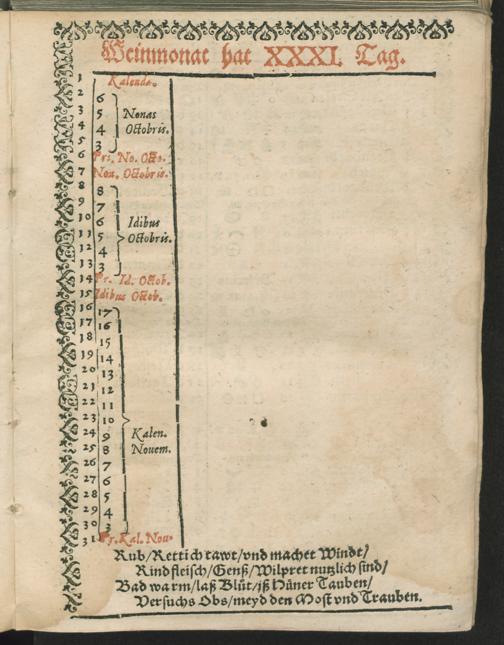 Weinmonat hat XXXI. Tag.
1 Kalendæ.
2 6
3 5 Nonas
4 4 Octobris.
5 3
6 Pri. No. Octo.
7 Non. Octobris.
8 8
9 7
10 6 Idibus
11 5 Octobris.
12 4
13 3
14 Pr. Id. Octob.
15 Idibus Octob.
16 17
17 16
18 15
19 14
20 13
21 12
22 11
23 10
24 9 Kalen.
25 8 Nouem.
26 7
27 6
28 5
29 4
30 3
31 Pr. Kal. Nou.
Rub/Rettich rawt/vnd machet Windt/
Rindfleisch/Genß/Wilpret nutzlich sind/
Bad warm/laß Blůt/iß Hüner Tauben/
Versuchs Obs/meyd den Most vnd Trauben.